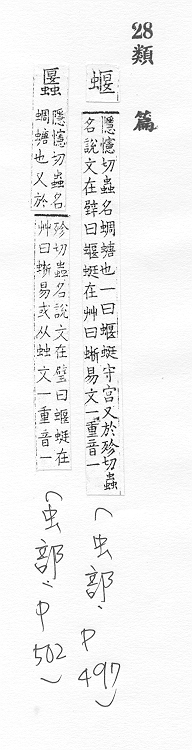 28 類篇
蝘
隱幰切蟲名蜩螗也一曰蝘蜓守宮又於殄切蟲
名說文在壁曰蝘蜓在艸曰蜥易文一重音一
(虫部,p497)
隱幰切蟲名
蜩螗也又於
殄切蟲名說文在壁曰蝘蜓在
艸曰蜥易或从䖵文一重音一
(虫部,p502)